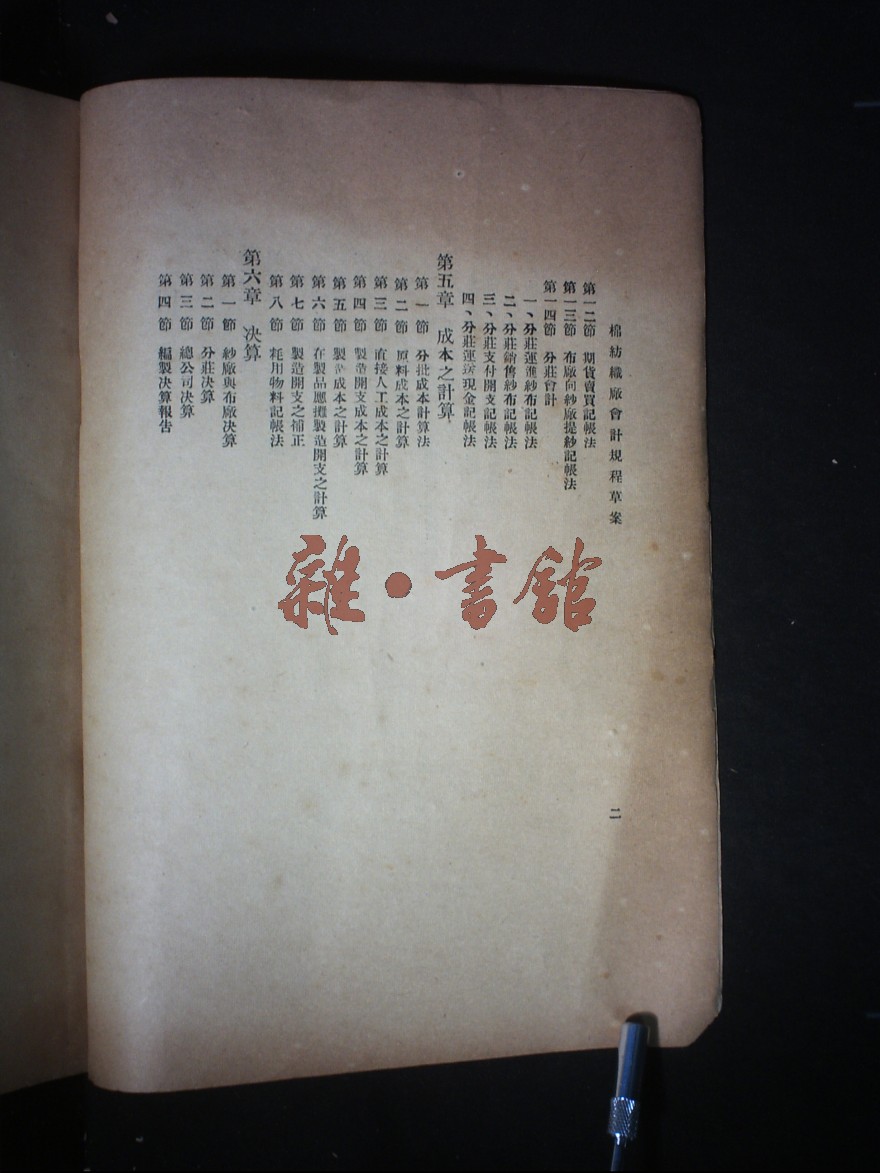 棉紡織廠會計規程草案
二
第一二節 期貨賣買記帳法
第一三節 布廠向紗廠提紗記帳法
第一四節 分莊會計
一、分莊運進紗布記帳法
二、分莊銷售紗布記帳法
三、分莊支付開支記帳法
四、分莊運送現金記帳法
第五章 成本之計算
第一節 分批成本計算法
第二節 原料成本之計算
第三節 直接人工成本之計算
第四節 製造開支成本之計算
第五節 製造成本之計算
第六節 在製品應攤製造開支之計算
第七節 製造開支之補正
第八節 耗用物料記帳法
第六章 決算
第一節 紗廠與布廠決算
第二節 分莊決算
第三節 總公司決算
第四節 編製決算報告
雜·書館